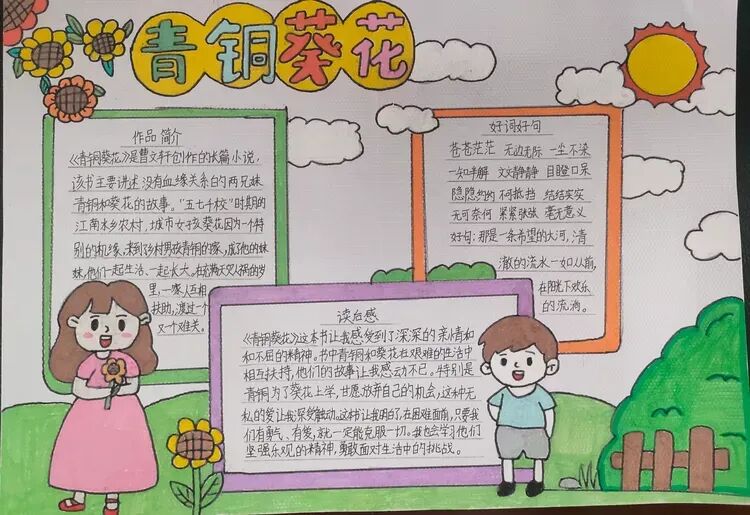 青铜葵花
作品简介
《青铜葵花》是曹文轩创作的长篇小说，
该书主要讲述没有血缘关系的两兄妹
青铜和葵花的故事。“五七干校”时期的
江南水乡农村，城市女孩葵花因为一个特
别的机缘，来到了乡村男孩青铜的家，成了他的妹
妹，他们一起生活、一起长大。在充满天灾人祸的岁
里，一家人互相
扶助，渡过一个
又一个难关。
好词好句
苍苍茫茫 无边无际 一尘不染
一知半解 文文静静 目瞪口呆
隐隐约约 不可抵挡 结结实实
无可奈何 紧紧张张 毫无意义
好句：那是一条希望的大河，清
澈的流水一如从前，
在阳光下欢乐
的流淌。
读后感
《青铜葵花》这本书让我感受到了深深的亲情和
和不屈的精神。书中青铜和葵花在艰难的生活中
相互扶持，他们的故事让我感动不已。特别是
青铜为了葵花上学，甘愿放弃自己的机会，这种无
私的爱让我深受触动。这本书让我明白了，在困难面前，只要我
们有勇气、有爱，就一定能克服一切。我也会学习他们
坚强乐观的精神，勇敢面对生活中的挑战。